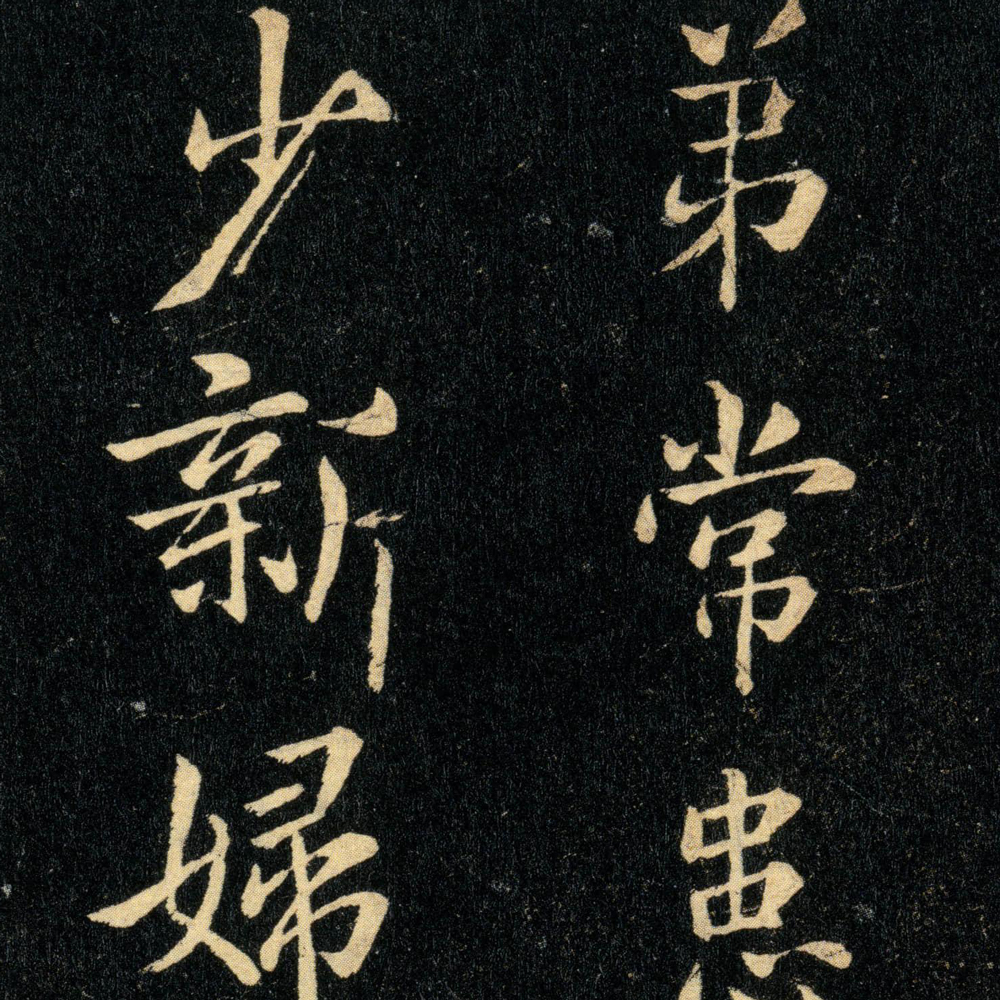 弟常患
少新婦